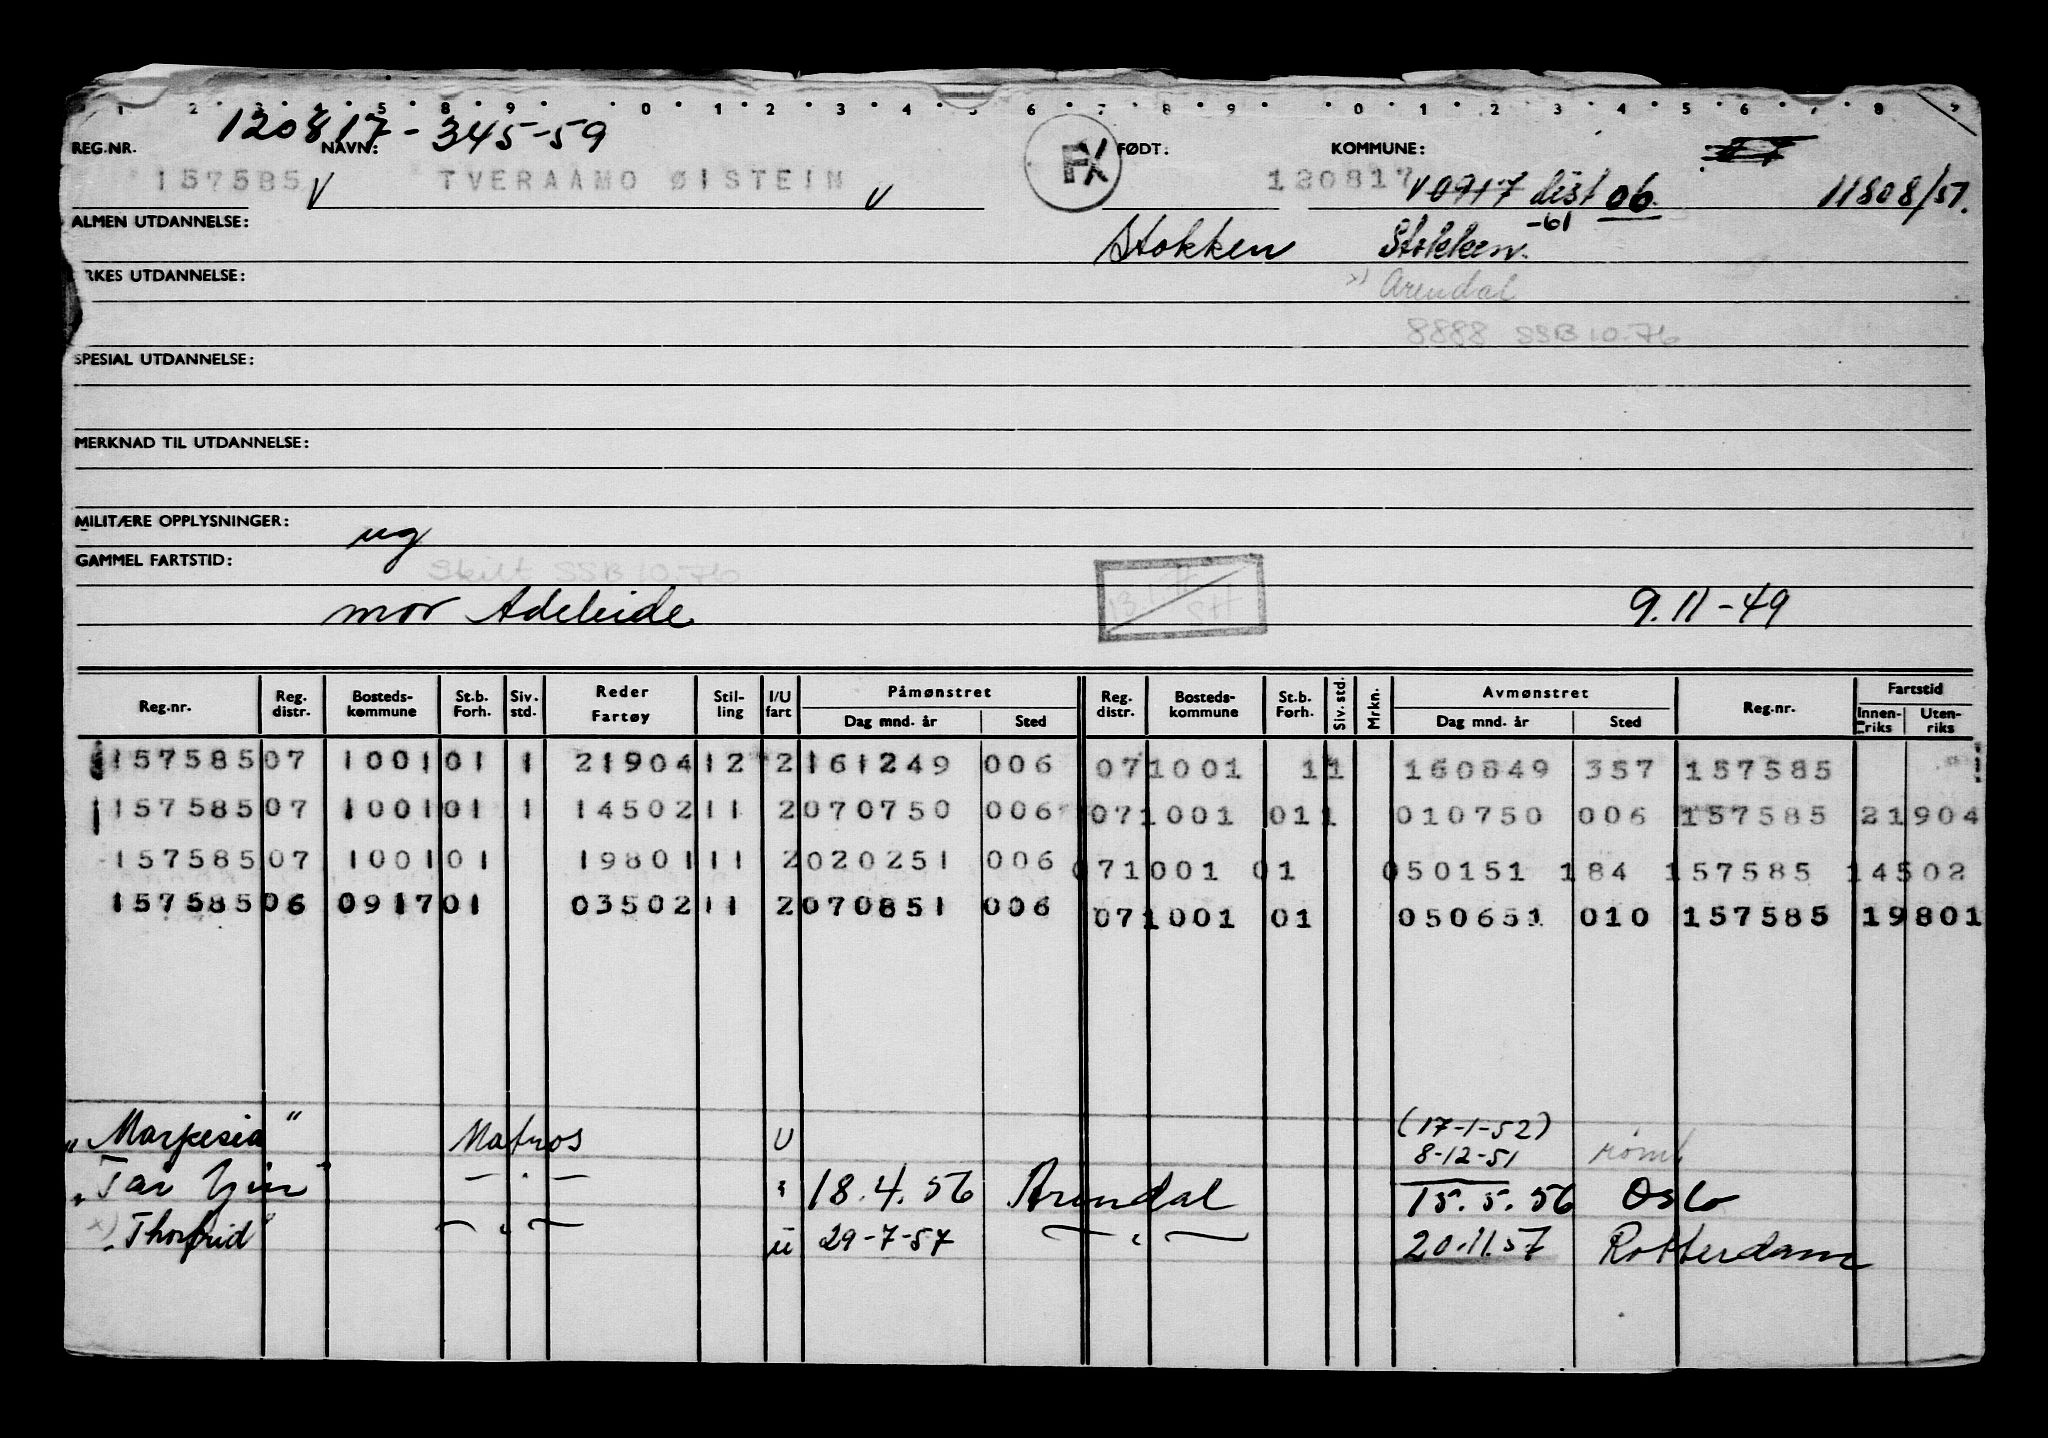 1 2 3 4 5 8 9 0 1 2 3 4 5 6 7 8 9 0 1 2 3 4 5 6 7 8 9
120817-345-59
REG.NR. NAVN: FØDT: KOMMUNE:
157585 V TVERAAMO ØISTEIN V 120817 V 0917 dist 06 11808/51.
ALMEN UTDANNELSE: Stokken Stokken. -61
RKES UTDANNELSE: x) Arendal
8888 SSB 10.76
SPESIAL UTDANNELSE:
MERKNAD TIL UTDANNELSE:
MILITÆRE OPPLYSNINGER: ug
GAMMEL FARTSTID: Skilt SSB 10.76
mor Adeleide 9.11-49
Reg.nr. Reg. distr. Bosteds-kommune St.b. Forh. Siv. std. Reder Fartøy Stil-ling I/U fart Påmønstret Dag mnd. år Sted Reg. distr. Bosteds-kommune St.b. Forh. Siv. std. Mrkn. Avmønstret Dag mnd. år Sted Reg.nr. Fartstid Innen-riks Uten-riks
157585 07 1001 01 1 21904 12 2 161249 006 07 1001 11 160849 357 157585
157585 07 1001 01 1 14502 11 2 070750 006 07 1001 01 1 010750 006 157585 21904
157585 07 1001 01 19801 11 2 020251 006 07 1001 01 050151 184 157585 14502
157585 06 0917 01 03502 11 2 070851 006 07 1001 01 050651 010 157585 19801
(17-1-52)
"Marpesia" Matros U 8-12-51 rømt
18.4.56 Arendal 15.5.56 Oslo
x) "Thorfrid" u 29-7-57 20.11.57 Rotterdam